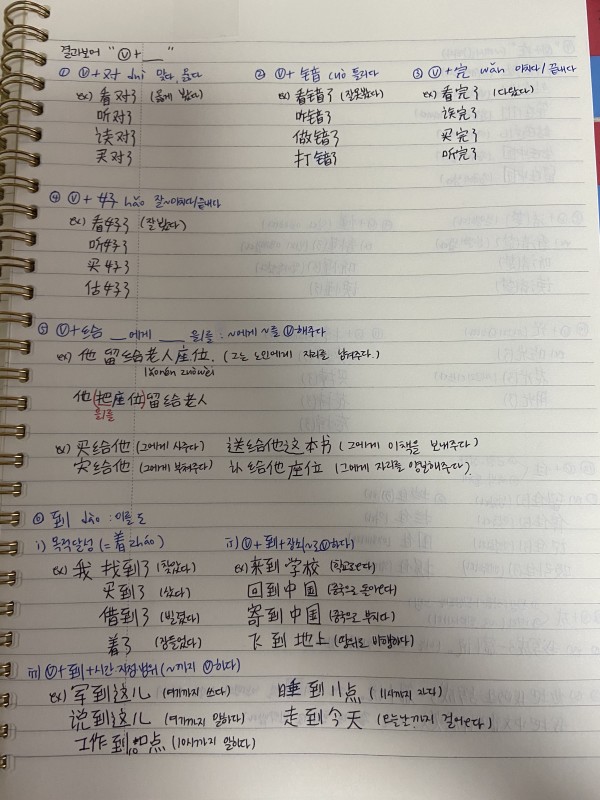 결과보어 "Ⓥ+__"
① Ⓥ+对 duì 맞다, 옳다
② Ⓥ+错 cuò 틀리다
③ Ⓥ+完 wán 마치다/끝내다
ex) 看对了 (옳게 봤다)
ex) 看错了 (잘못봤다)
ex) 看完了 (다 봤다)
听对了
听错了
读完了
读对了
做错了
买完了
买对了
打错了
听完了
④ Ⓥ+好 hǎo 잘~마치다/끝내다
ex) 看好了 (잘 봤다)
听好了
买好了
估好了
⑤ Ⓥ+给 __에게 __을/를 : ~에게 ~를 Ⓥ해주다
ex) 他 留给老人座位. (그는 노인에게 자리를 남겨주다.)
lǎorén zuòwèi
他(把座位)留给老人
을/를
ex) 买给他 (그에게 사주다) 送给他这本书 (그에게 이책을 보내주다)
(그에게 부쳐주다) 让给他座位 (그에게 자리를 양보해주다)
⑥ 到 dào : 이를 도
i) 목적달성 (=着 zháo)
ii) Ⓥ+到+장소(~로 Ⓥ하다)
ex) 我 找到了 (찾았다)
ex) 来到学校 (학교로 왔다)
买到了 (샀다)
回到中国 (중국으로 돌아왔다)
借到了 (빌렸다)
寄到中国 (중국으로 부치다)
着了 (잠들었다)
飞到地上 (땅위로 비행하다)
iii) Ⓥ+到+시간 지점 범위 (~까지 Ⓥ하다)
ex) 写到这儿 (여기까지 쓰다) 睡到11点 (11시까지 자다)
说到这儿 (여기까지 말하다) 走到今天 (오늘날까지 걸어오다)
工作到10点 (10시까지 일하다)